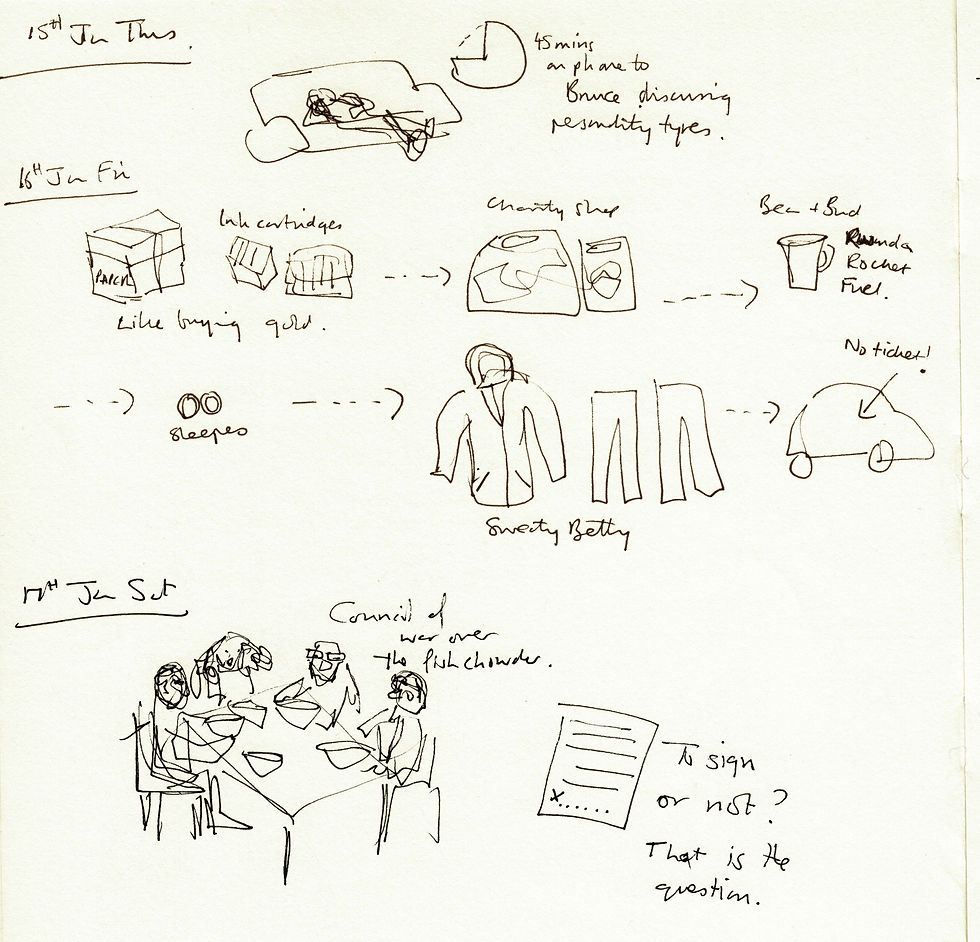 15TH Jan Thurs.
45 mins
on phone to
Bruce discussing
personality types.
16TH Jan Fri
PARCEL
Ink cartridges
Like buying gold.
Charity shop
Bean + Bud
Rwanda
Rocket
Fuel.
No ticket!
Sleepes
Sweaty Betty
17TH Jan Sat
Council of
war over
the fish chowder.
x......
To sign
or not?
That is the
question.